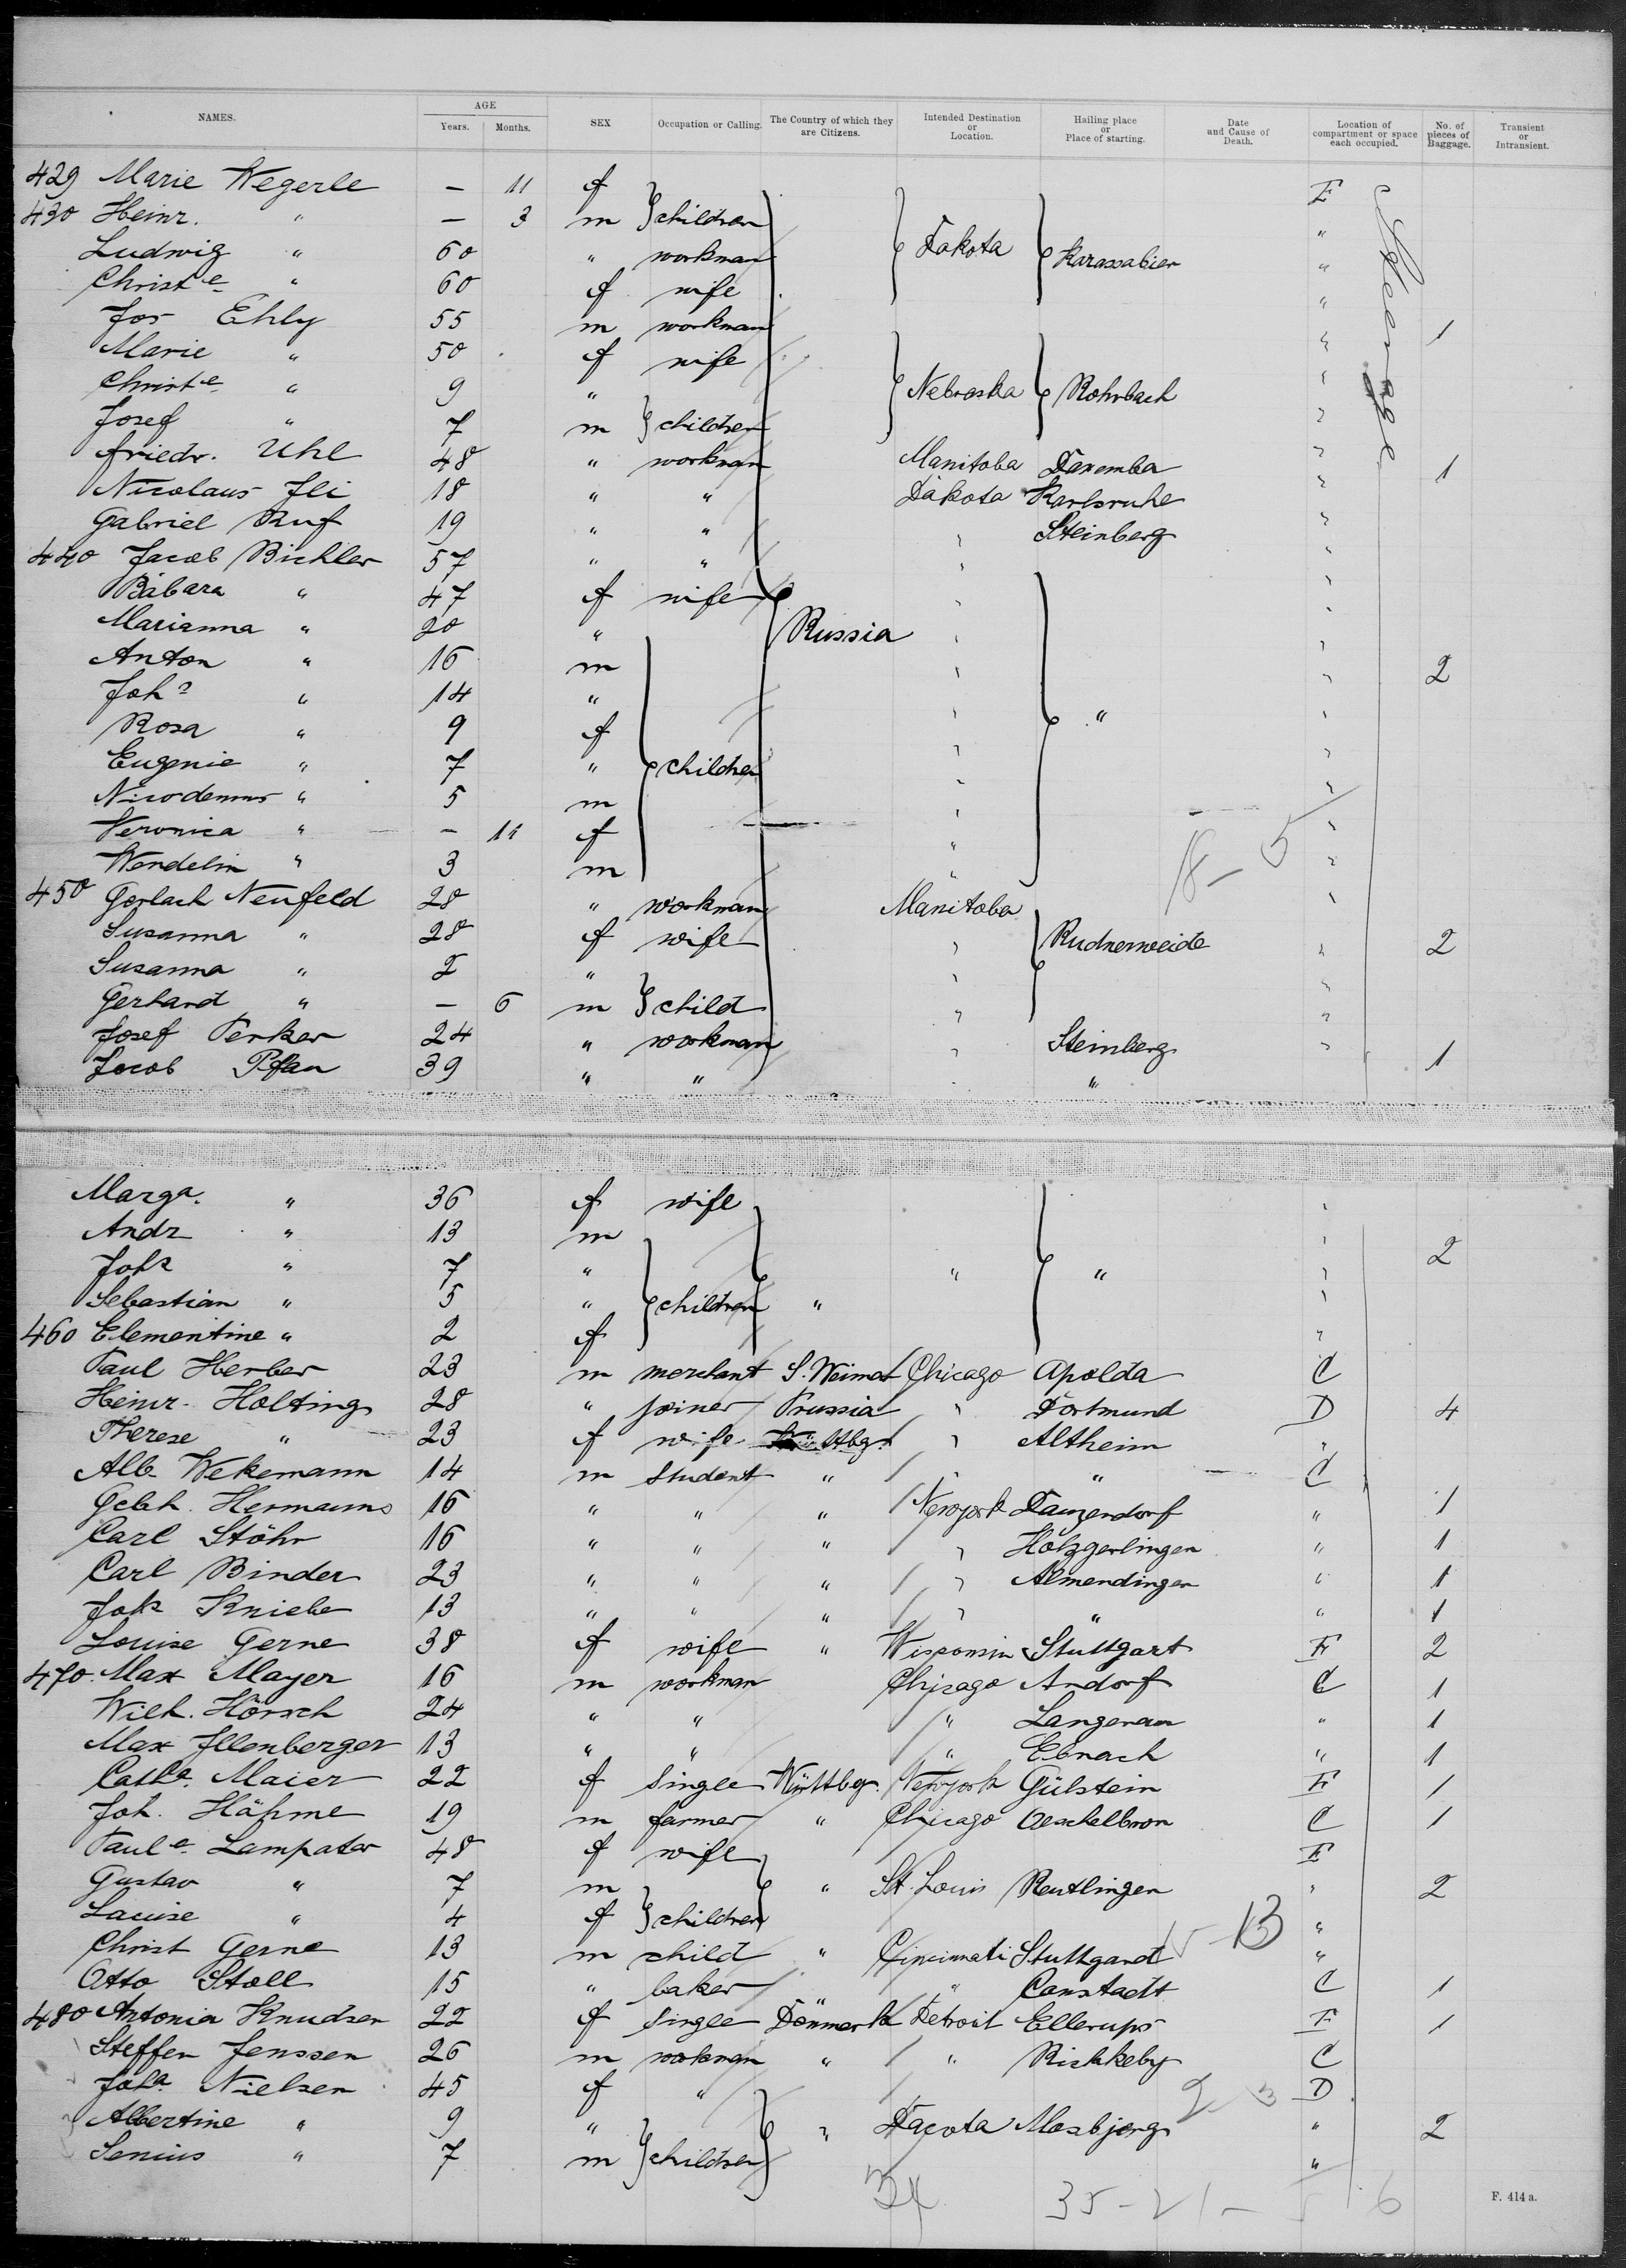 NAMES. AGE Years. Months. SEX Occupation or Calling. The Country of which they are Citizens. Intended Destination or Location. Hailing place or Place of starting. Date and Cause of Death. Location of compartment or space each occupied. No. of pieces of Baggage. Transient or Intransient.
429 Marie Wegerle — 11 f E Steerage
430 Heinr. " — 3 m children "
Ludwig " 60 " workman Dakota Karassabier "
Christe " 60 f wife "
Jos Ehly 55 m workman " 1
Marie " 50 f wife "
Christe " 9 " Nebraska Rohrbach "
Josef " 7 m children "
Friedr. Uhl 48 " workman Manitoba Daxemba " 1
Nicolaus Ili 18 " " Dakota Karlsruhe "
Gabriel Ruf 19 " " " Steinberg "
440 Jacob Bichler 57 " " " "
Babara " 47 f wife " "
Marianna " 20 " Russia " "
Anton " 16 m " " 2
Joh. " 14 " " " "
Rosa " 9 f " "
Eugenie " 7 " children " "
Nicodemus " 5 m " "
Veronica " — 11 f " " 18 - 5
Wendelin " 3 m " "
450 Gerlach Neufeld 28 " workman Manitoba "
Susanna " 28 f wife " Rudnerweide " 2
Susanna " 2 " " "
Gerhard " — 6 m child " "
Josef Terker 24 " workman " Steinberg " 1
Jacob Pfau 39 " " " "
Marga. " 36 f wife "
Andr " 13 m " 2
Joh " 7 " " " "
Sebastian " 5 " children " "
460 Elementine " 2 f "
Paul Herber 23 m merchant S. Weimar Chicago Apolda C
Heinr. Holting 28 " joiner Prussia " Dortmund D 4
Therese " 23 f wife Württbg. " Altheim "
Alb. Wekemann 14 m student " " " C
Gebh. Hermanns 16 " " " Newyork Dauzendorf " 1
Carl Stöhr 16 " " " " Holzgerlingen " 1
Carl Binder 23 " " " " Almendingen " 1
Joh Kniebe 13 " " " " " " 1
Louise Gerne 38 f wife " Wisconsin Stuttgart F 2
470. Max Mayer 16 m workman Chicago Andorf C 1
Wilh. Hörsch 24 " " " Langenau " 1
Max Illenberger 13 " " " Ebnach " 1
Catha. Maier 22 f single Württbg. Newyork Gülstein F 1
Joh. Hähme 19 m farmer " Chicago Oeschelbron C 1
Paule Lampater 48 f wife F
Gustav " 7 m " St. Louis Reutlingen " 2
Lacuise " 4 f children "
Christ Gerne 13 m child " Cincinnati Stuttgardt "  13
Otto Stoll 15 " baker " Canstadt C 1
480 Antonia Knudsen 22 f single Dänmark Detroit Ellerups F 1
Steffen Jenssen 26 m workman " " Rishkeby C
Joha. Nielsen 45 f " D 2 3
Albertine " 9 " " Dacota Mosbjerg " 2
Senius " 7 m children "
35 - 21 - 5 1 6
F. 414 a.